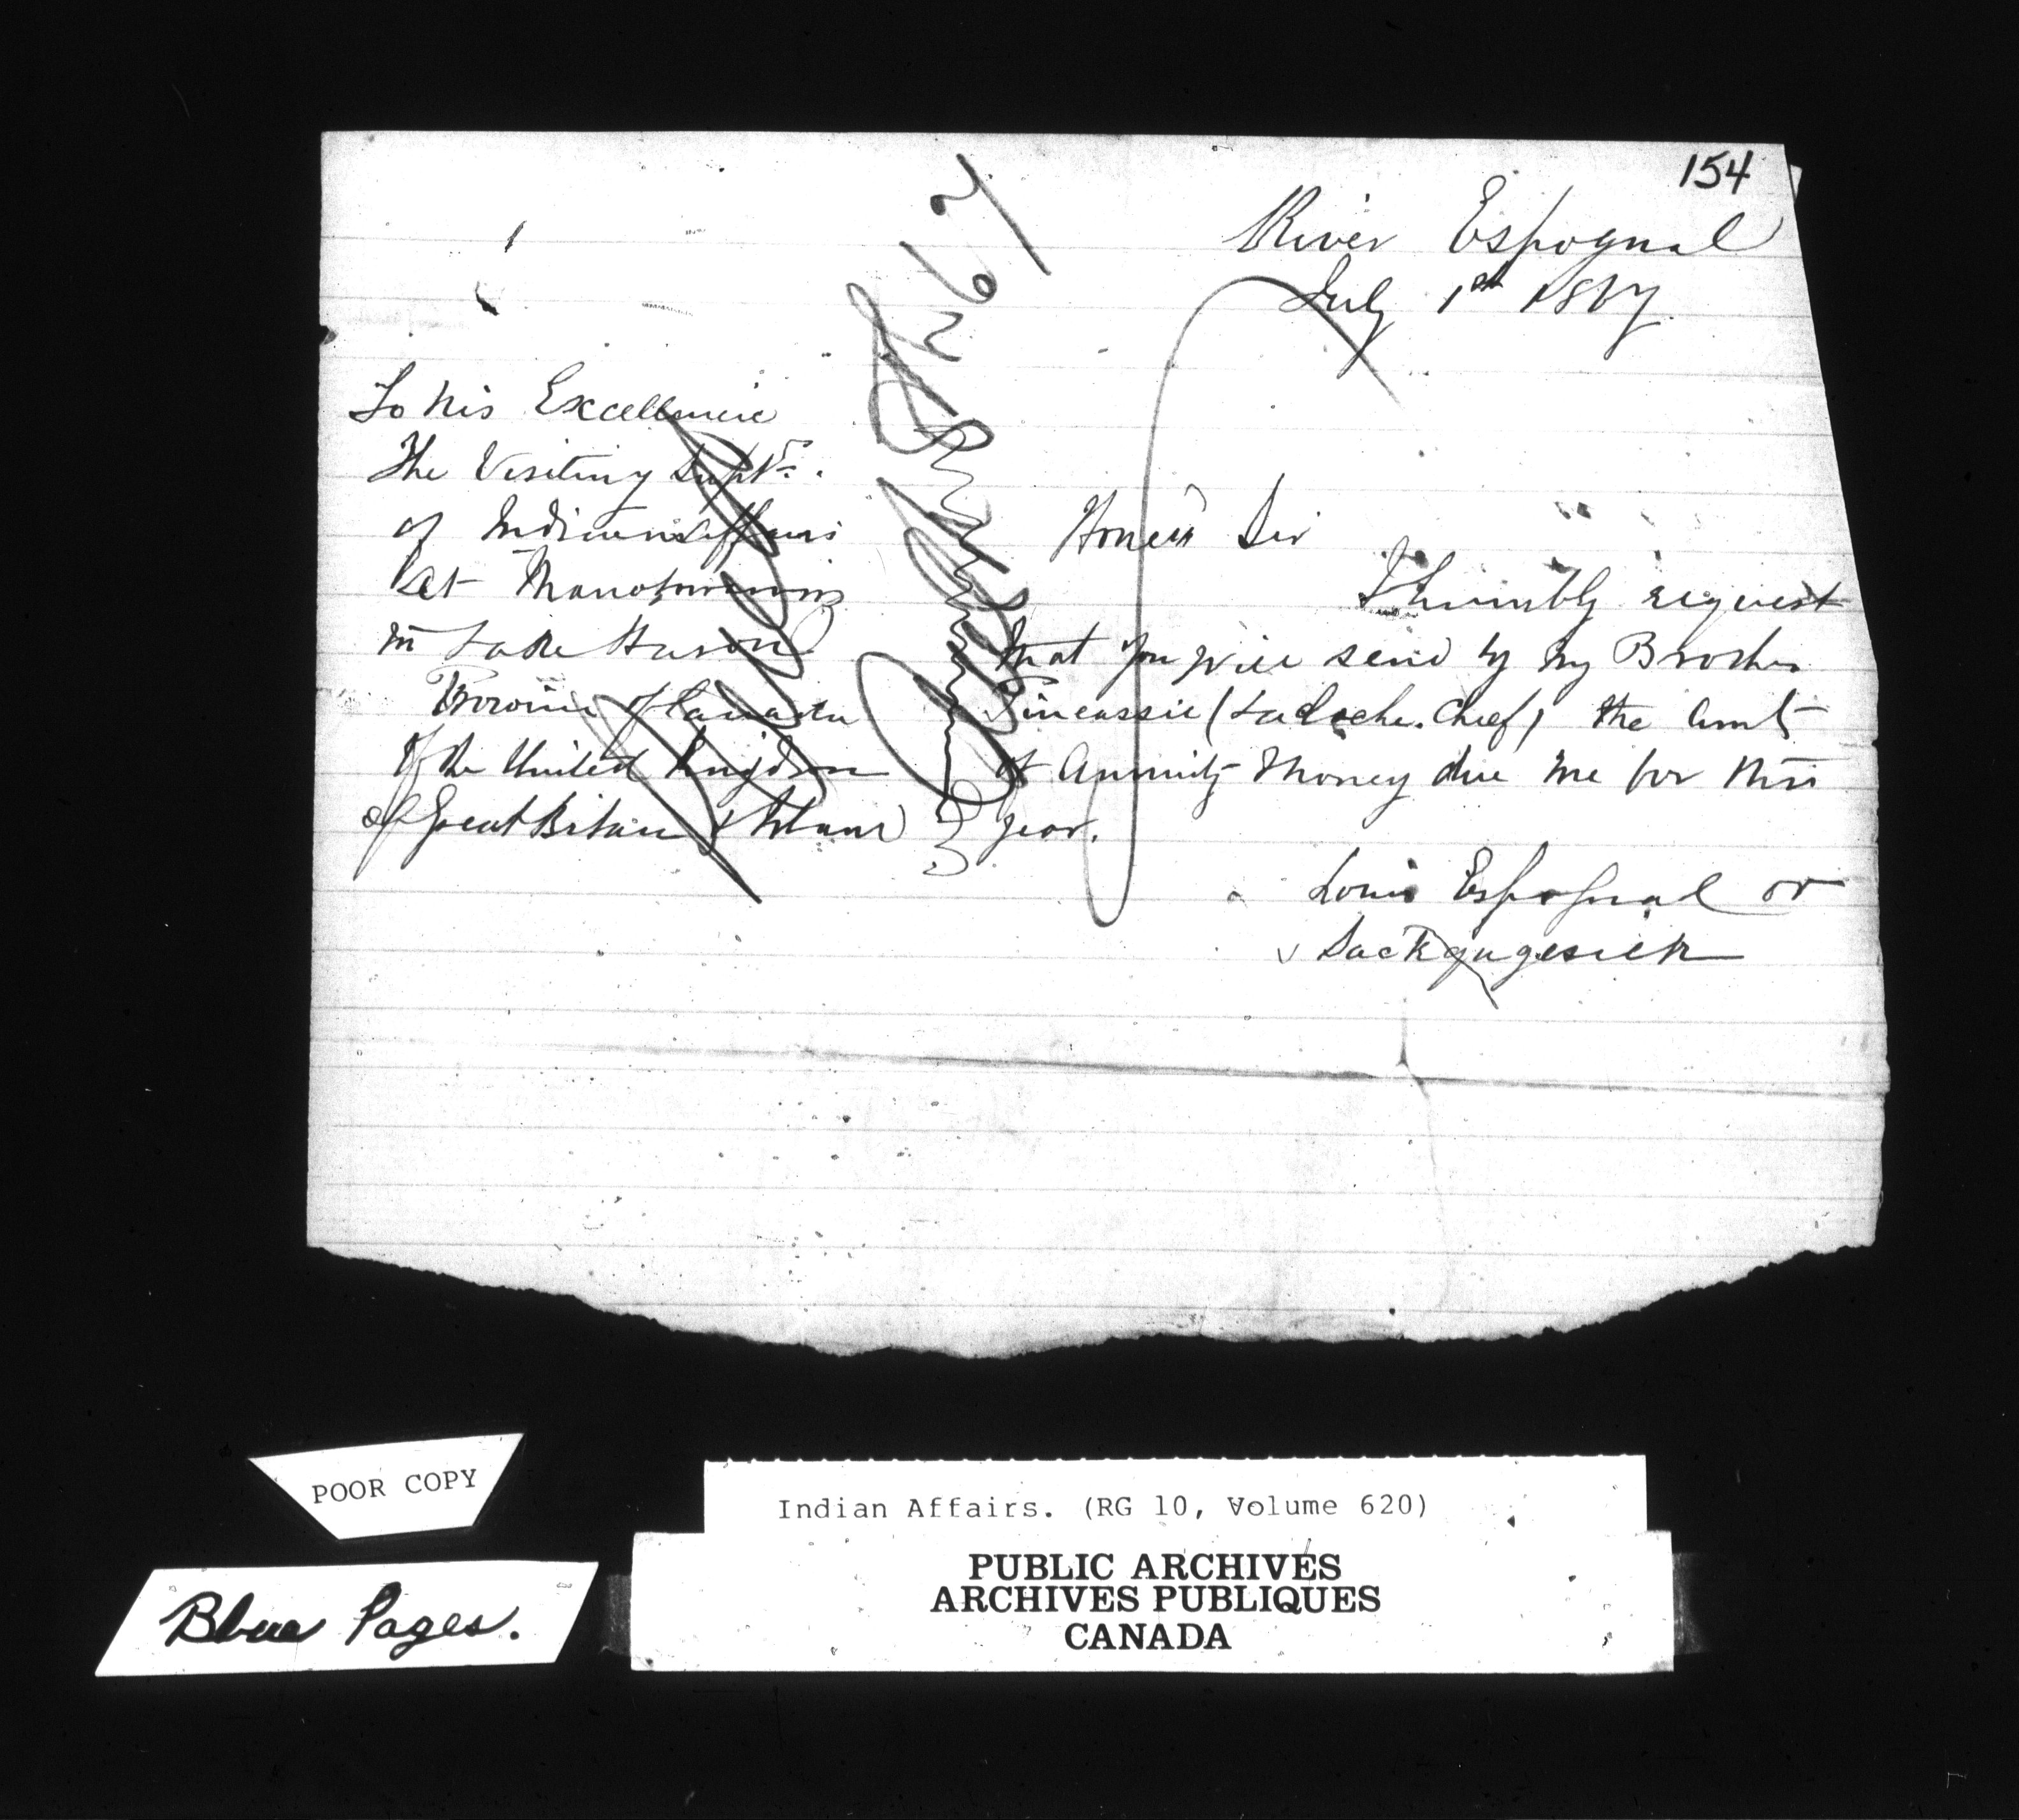 154
River Espognal
July 1st 1867.
To his Excellencie
The Visiting Supt
of Indian Affairs
at
in Lake Huron
Province of Canada
of the United Kingdom
of Great Britain &
Honed Sir
I humbly request
that you will send by my Brother
(Laloche. Chief) the Amt
of Annuity Money due me for this
year.
Louis Espognal or
Paid
67
POOR COPY
Blue Pages.
Indian Affairs. (RG 10, Volume 620)
PUBLIC ARCHIVES
ARCHIVES PUBLIQUES
CANADA